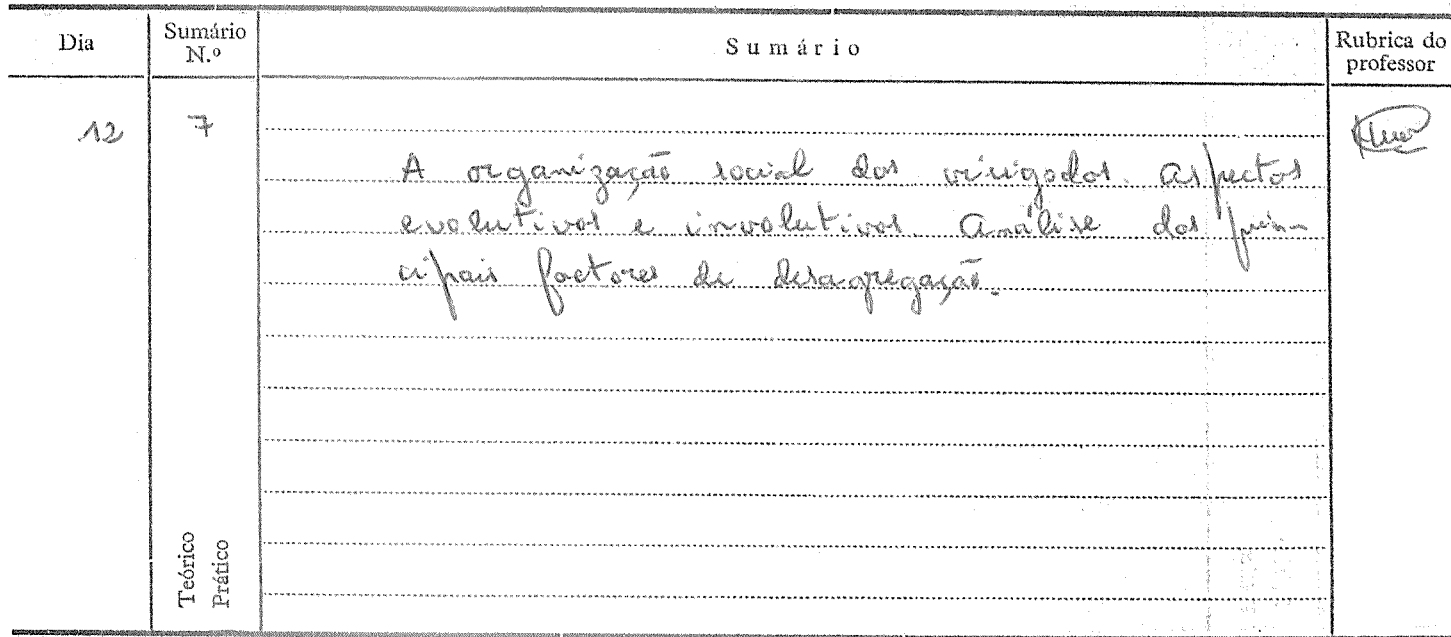 Dia
Sumário
N.º
Sumário
Rubrica do
professor
12
7
A organização social dos visigodos. Aspectos
evolutivos e involutivos. Análise dos prin-
cipais factores de desagregação.
Teórico
Prático